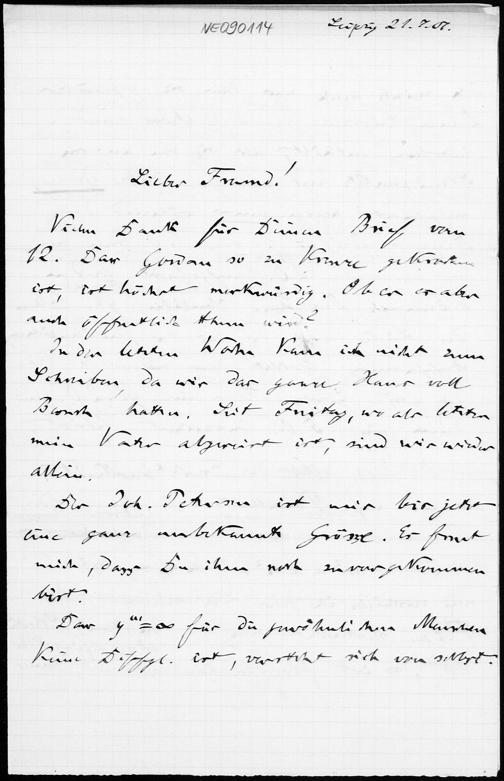 NE090114
Leipzig 21.7.07.
Lieber Freund!
Vielen Dank für Deinen Brief vom
12. Dass Gordan so zu Kreuze gekrochen
ist, ist höchst merkwürdig. Ob er es aber
auch öffentlich thun wird?
In der letzten Woche kam ich nicht zum
Schreiben, da wir das ganze Haus voll
Besuch hatten. Seit Freitag, wo als letzter
mein Vater abgereist ist, sind wir wieder
allein.
Der Joh. Petersen ist mir bis jetzt
eine ganz unbekannte Grösse. Es freut
mich, dass Du ihm noch zuvorgekommen
bist.
Dass y'''=∞ für die gewöhnlichen Menschen
keine Diffgl. ist, versteht sich von selbst.